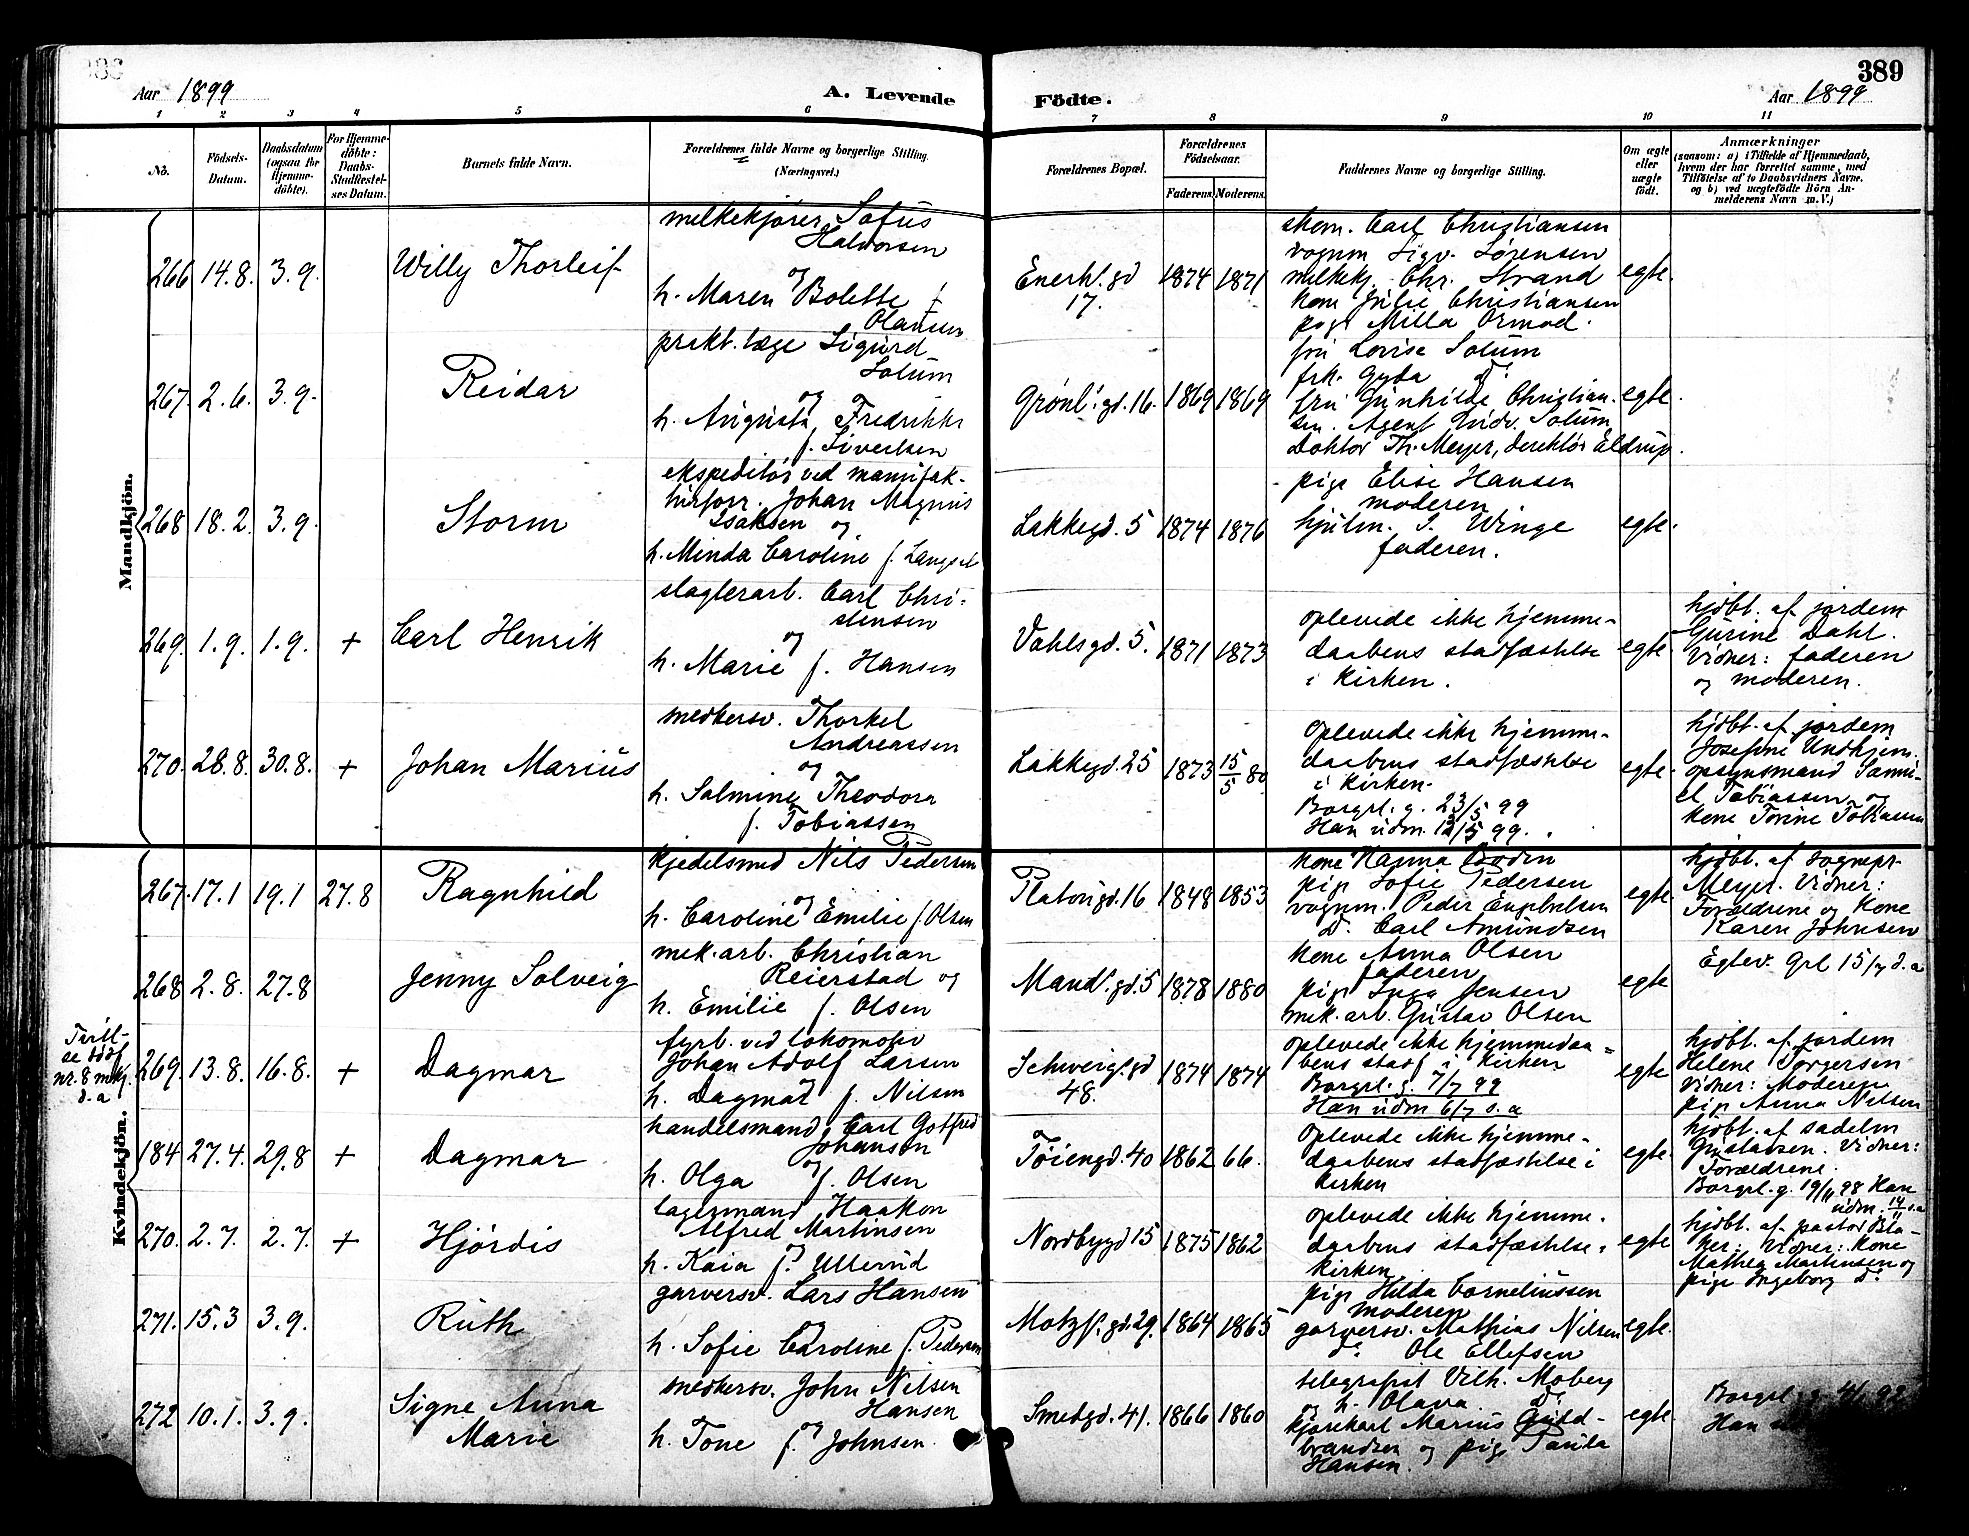 389
Aar 1899
A. Levende Födte.
Aar 1899
1 2 3 4 5 6 7 8 9 10 11
No.
Födsels-
Datum.
Daabsdatum
(ogsaa for
Hjemme-
döbte).
For Hjemme-
döbte:
Daabs-
Stadfæstel-
ses Datum.
Barnets fulde Navn.
Forældrenes fulde Navne og borgerlige Stilling.
(Næringsvei.)
Forældrenes Bopæl.
Forældrenes
Födselsaar.
Faderens Moderens.
Faddernes Navne og borgerlige Stilling.
Om ægte
eller
uægte
födt.
Anmærkninger
(saasom: a) i Tilfælde af Hjemmedaab,
hvem der har forrettet samme, med
Tilföielse af to Daabsvidners Navne,
og b) ved uægtefödte Börn An-
melderens Navn m.V.)
Mandkjön.
266 14.8. 3.9.
Willy Thorleif
melkekjører Sofus
Halvorsen
og
h. Maren Bolette f
Olausen
Enerh.gd
17.
1874 1871
skom. Carl Christiansen
vognm Sigv. Sørensen
melkekj. Chr. Strand
kone Julie Christiansen
pige Milla Ormod.
egte.
267. 2.6. 3.9.
Reidar
prakt. læge Sigurd
Solum
og
h. Augusta Fredrikke
f. Sivertsen
Grønl.gd.16.
1869 1869
fru Lovise Solum
frk. Gyda do
fru Gunhilde Christian-
sen. Agent Ludv. Solum
Doktor Th. Meyer, direktør Eldrup.
egte.
268 18.2. 3.9.
Storm
ekspeditør ved manufak-
turforr. Johan Magnus
Isaksen og
h. Minda Caroline f. Langset
Lakkegd. 5
1874 1876
pige Elise Hansen
moderen
hjulm. I. Winge
faderen.
egte.
269. 1.9. 1.9. +
Carl Henrik
slagterarb. Carl Chri-
stensen
og
h. Marie f. Hansen
Vahlsgd. 5.
1871 1873
oplevede ikke hjemme-
daabens stadfæstelse
i kirken.
egte.
hjdbt. af jordem
Gurine Dahl.
Vidner: faderen
og moderen.
270. 28.8. 30.8. +
Johan Marius
smedsv. Thorkel
Andreassen
og
h. Salmine Theodora
f. Tobiassen
Lakkegd. 25
1873 15/5 80
oplevede ikke hjemme-
daabens stadfæstelse
i kirken.
Borgrl. g. 23/5 99
Han udm. 12/5 99.
egte.
hjdbt. af jordem
Josefine Undhjem.
opsynsmand Samu-
el Tobiassen og
kone Torine Tobiassen
Kvindekjön.
267. 17.1 19.1 27.8
Ragnhild
kjedelsmed Nils Pedersen
og
h. Caroline Emilie f. Olsen
Platousgd. 16
1848 1853
kone Hanna Bodin
pige Sofie Pedersen
vognm. Peder Engbretsen
do. Carl Amundsen
egte.
hjdbt. af sognepr.
Meyer. Vidner:
Forældrene og Kone
Karen Johnsen
268 2.8. 27.8
Jenny Solveig
mek. arb. Christian
Reierstad og
h. Emilie f. Olsen
Mands.gd. 5
1878 1880
kone Anna Olsen
faderen
pige Inga Jensen
mek. arb. Gustav Olsen
egte
Egtev. Grl 15/7 d.a
Tvill-
se ddf
nr. 8 mkj.
d.a
269. 13.8. 16.8. +
Dagmar
fyrb. ved lokomotiv
Johan Adolf Larsen
h. Dagmar f. Nilsen
Schweigs.gd
48.
1874 1874
oplevede ikke hjemmedaa-
bens stadf i kirken
Borgrl. g. 7/7 99
Han udm 6/7 s.a
egte
hjdbt. af jordem
Helene Torgersen
Vidner: Moderen
pige Anna Nilsen
184 27.4. 29.8 +
Dagmar
handelsmand Carl Gotfred
Johansen
og
h. Olga f. Olsen
Tøiengd. 40
1862 66.
oplevede ikke hjemme-
daabens stadfæstelse i
kirken
egte.
hjdbt. af sadelm
Gustavsen. Vidner:
Forældrene.
Borgrl. g. 19/11 98 Han
udm. 14/11 s.a
270. 2.7. 2.7. +
Hjördis
lagermand Haakon
Alfred Martinsen
og
h. Kaia f. Ullerud
Nordbygd 15
1875 1862
oplevede ikke hjemme-
daabens stadfæstelse i
kirken
egte
hjdbt. af pastor Bla-
ker. Vidner: Kone
Mathea Martinsen og
pige Ingeborg do
271. 15.3 3.9.
Ruth
garversv. Lars Hansen
og
h. Sofie Caroline f. Pedersen
Motzf.gd. 29.
1864 1865
pige Hilda Corneliussen
moderen
garversv. Mathias Nilsen
do Ole Ellefsen
egte.
272 10.1. 3.9.
Signe Anna
Marie
smedsv. John Nilsen
Hansen
og
h. Tone f. Johnsen.
Smedgd. 41.
1866 1860
telegrafist Vilh. Moberg
og h. Olava do
kjørekarl Marius Guld-
brandsen og pige Paula
Hansen.
egte.
Borgrl. g.
Han